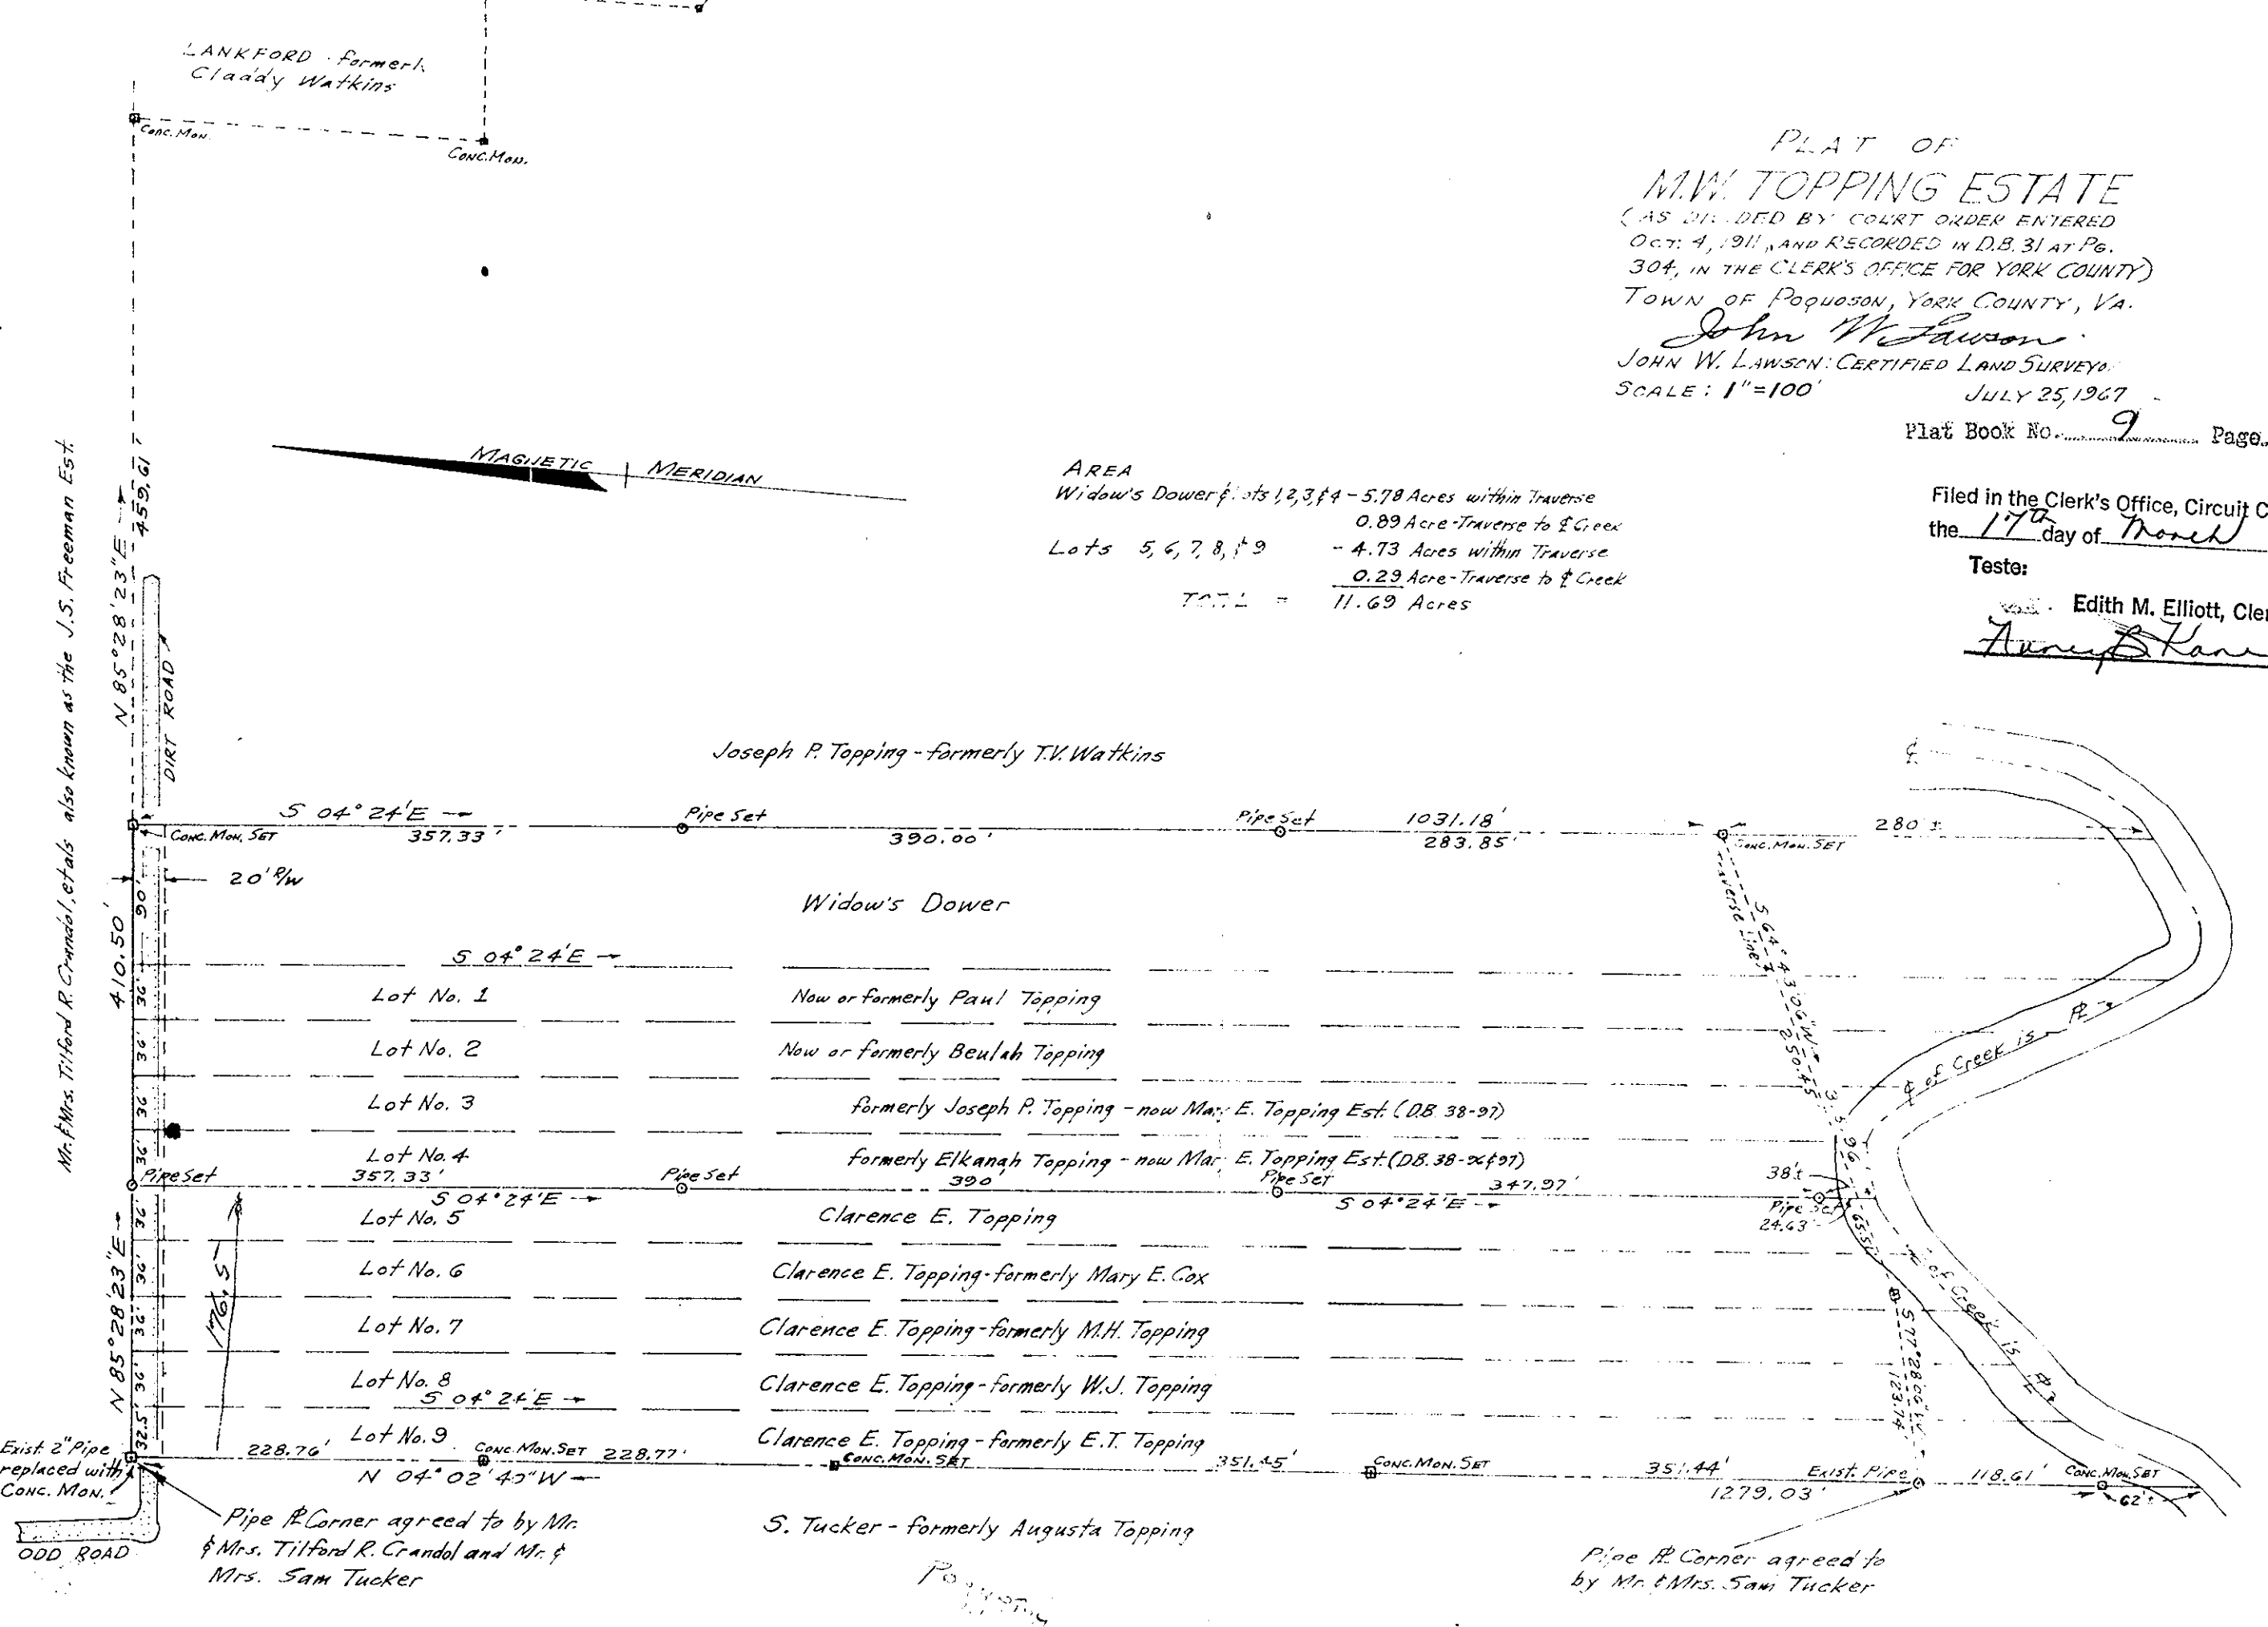 LANKFORD - formerl
Claddy Watkins
Conc. Mon.
Conc. Mon.
PLAT OF
M.W. TOPPING ESTATE
(AS DIVIDED BY COURT ORDER ENTERED
Oct. 4, 1911, AND RECORDED IN D.B. 31 AT PG.
304, IN THE CLERK'S OFFICE FOR YORK COUNTY)
TOWN OF POQUOSON, YORK COUNTY, VA.
John W. Lawson
JOHN W. LAWSON: CERTIFIED LAND SURVEYO
SCALE: 1"=100' JULY 25, 1967
Plat Book No. 9 Page
Filed in the Clerk's Office, Circuit C
the 17th day of March
Teste:
Edith M. Elliott, Cle
MAGNETIC MERIDIAN
AREA
Widow's Dower & Lots 1, 2, 3, & 4 - 5.78 Acres within Traverse
0.89 Acre-Traverse to ℄ Creek
Lots 5, 6, 7, 8, & 9 - 4.73 Acres within Traverse
0.29 Acre-Traverse to ℄ Creek
TOTAL = 11.69 Acres
Mr. & Mrs. Tilford R. Crandol, et als also known as the J.S. Freeman Est.
N 85° 28' 23" E → 459.61'
DIRT ROAD
Joseph P. Topping - formerly T.V. Watkins
S 04° 24' E →
Conc. Mon. Set
357.33'
Pipe Set
390.00'
Pipe Set
1031.18'
283.85'
Conc. Mon. Set
280'±
℄
20' R/W
90'
410.50'
Widow's Dower
Traverse Line
S 64° 43' 06" W → 250.45'
S 04° 24' E →
36'
Lot No. 1 Now or formerly Paul Topping
36'
Lot No. 2 Now or formerly Beulah Topping
36'
Lot No. 3 formerly Joseph P. Topping - now Mary E. Topping Est. (D.B. 38-97)
36'
Lot No. 4 formerly Elkanah Topping - now Mar E. Topping Est. (D.B. 38-96 & 97)
℄ of Creek is ℄
Pipe Set
357.33'
Pipe Set
390'
Pipe Set
347.97'
38'±
Pipe Set
24.63'
65.51'
S 04° 24' E →
S 04° 24' E →
36'
Lot No. 5 Clarence E. Topping
36'
Lot No. 6 Clarence E. Topping - formerly Mary E. Cox
36'
Lot No. 7 Clarence E. Topping - formerly M.H. Topping
36'
Lot No. 8 Clarence E. Topping - formerly W.J. Topping
S 04° 24' E →
32.5'
Lot No. 9 Clarence E. Topping - formerly E.T. Topping
N 85° 28' 23" E →
176.5
of Creek is
S 77° 28' 06" W
123.74
Exist. 2" Pipe
replaced with
Conc. Mon.
228.76'
Conc. Mon. Set
228.77'
Conc. Mon. Set
351.45'
Conc. Mon. Set
351.44'
Exist. Pipe
118.61'
Conc. Mon. Set
62'±
N 04° 02' 40" W
1279.03'
ODD ROAD
Pipe ℄ Corner agreed to by Mr.
& Mrs. Tilford R. Crandol and Mr. &
Mrs. Sam Tucker
S. Tucker - formerly Augusta Topping
Pipe ℄ Corner agreed to
by Mr. & Mrs. Sam Tucker